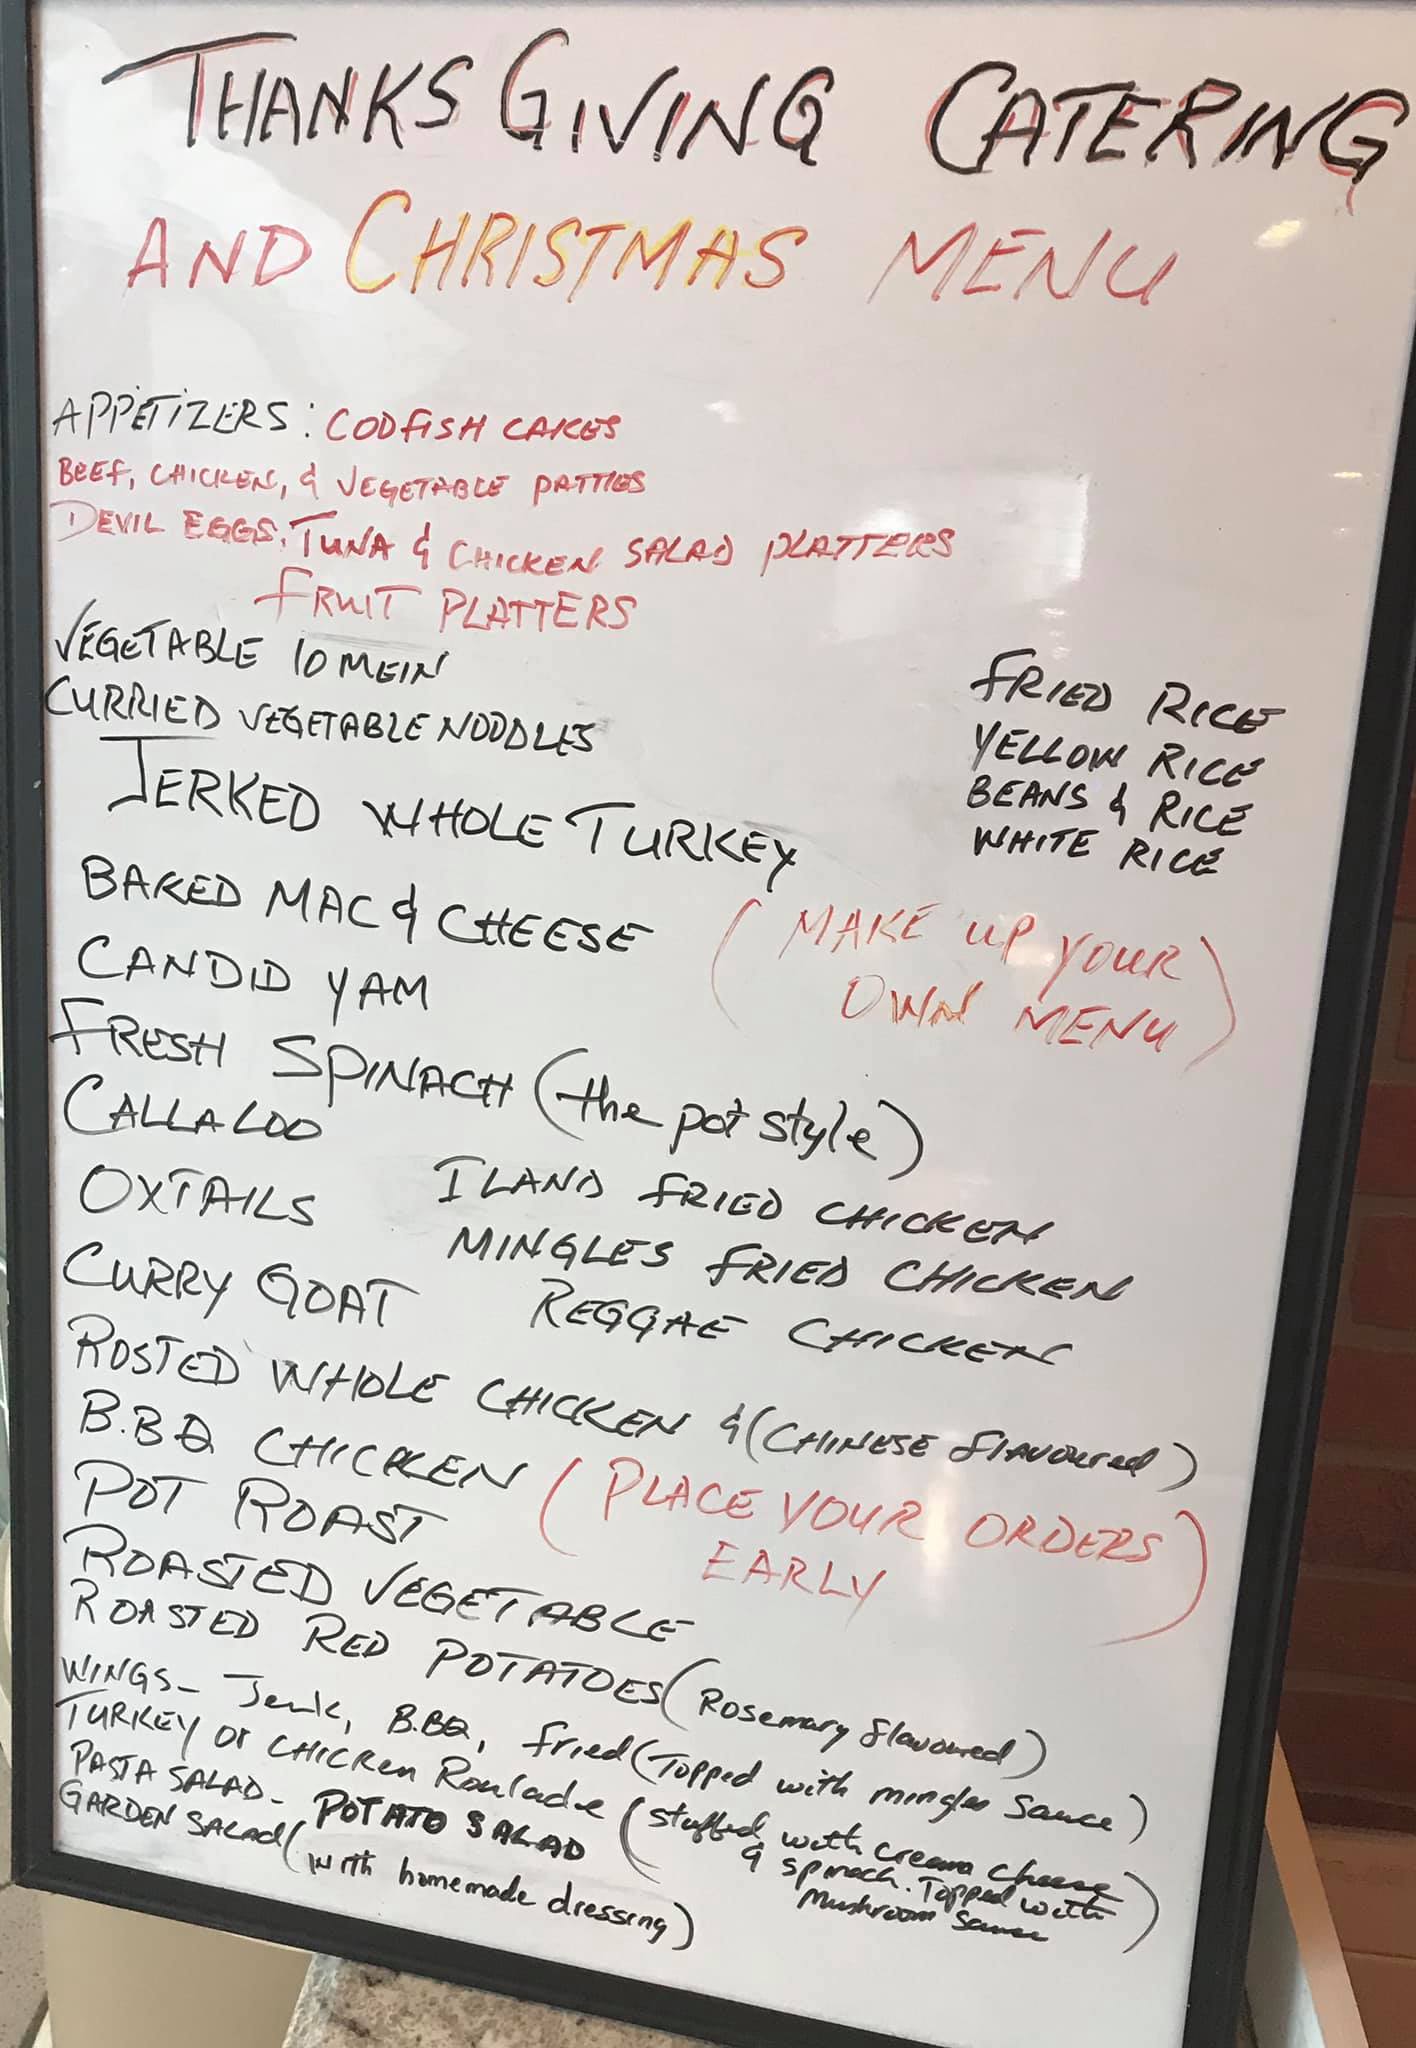 THANKS GIVING CATERING
AND CHRISTMAS MENU
APPETIZERS: CODFISH CAKES
BEEF, CHICKEN, & VEGETABLE PATTIES
DEVIL EGGS. TUNA & CHICKEN SALAD PLATTERS
FRUIT PLATTERS
VEGETABLE lO MEIN
CURRIED VEGETABLE NOODLES
FRIED RICE
YELLOW RICE
BEANS & RICE
WHITE RICE
JERKED WHOLE TURKEY
BAKED MAC & CHEESE
(MAKE UP YOUR
OWN MENU)
CANDID YAM
FRESH SPINACH (the pot style)
CALLALOO
OXTAILS
ILAND FRIED CHICKEN
MINGLES FRIED CHICKEN
CURRY GOAT
REGGAE CHICKEN
ROSTED WHOLE CHICKEN & (CHINESE flavoured)
B.BQ CHICKEN
(PLACE YOUR ORDERS
EARLY)
POT ROAST
ROASTED VEGETABLE
ROASTED RED POTATOES (Rosemary flavoured)
WINGS - Jerk, B.BQ, fried (Topped with mingles sauce)
TURKEY or CHICKEN Roulade (stuffed with cream cheese
& spinach. Topped with
mushroom sauce)
PASTA SALAD - POTATO SALAD
GARDEN SALAD (with homemade dressing)